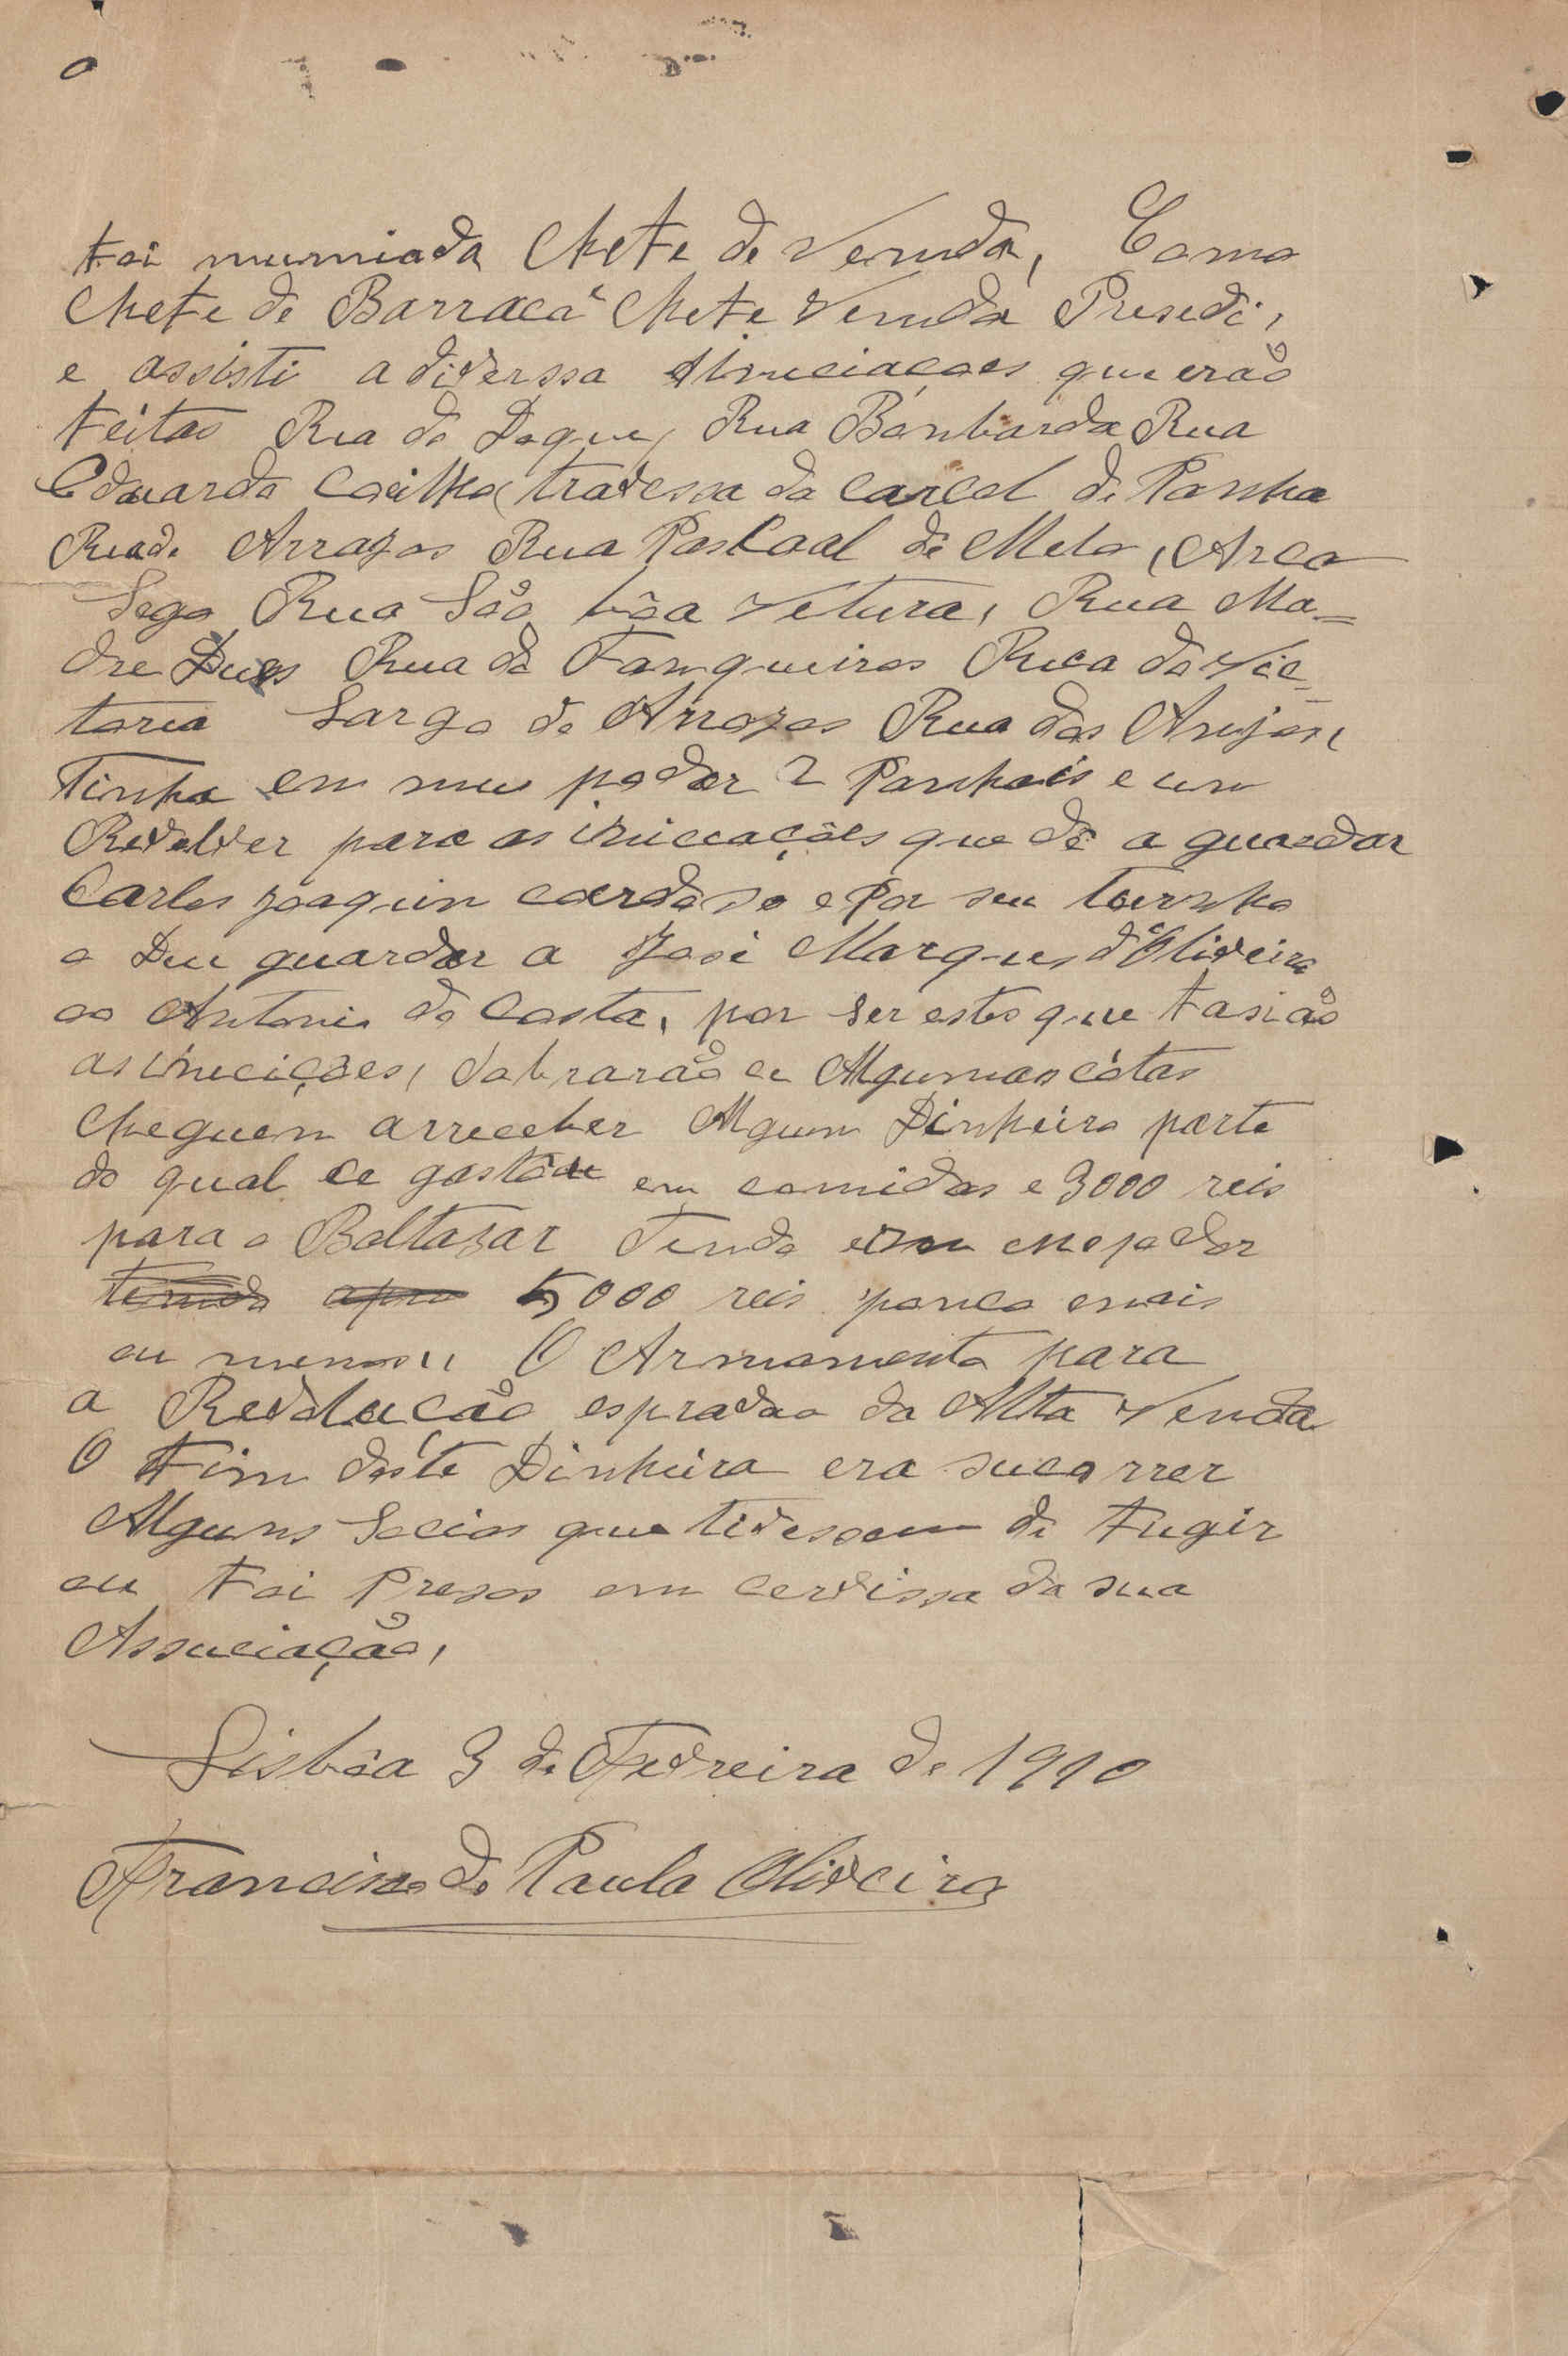 foi numiada Chefe de Venda, Como
Chefe de Barraca e Chefe Venda Presedi,
e assisti a diverssa que erão
feitas Rua do Doque, Rua Bonbarda Rua
Eduardo Coilho, travessa da Carcol di Panha
Rua de Arrojos Rua Pascoal de Melo, Arco
Sego Rua São bôa Vetura, Rua Ma=
dre Dues Rua da Fanqueiros Rua da Vic-
toria Largo do Arrojos Rua dos Anjos,
Tinha em meu poder 2 Panhais e um
Revolver para as que dê a guardar
Carlos Joaquin cardoso e Por seu turnho
o Deu guardar a José Marques d'Oliveira
ao Antonio da Costa, por ser estes que fasião
as inicições, cobrarão ce Algumas cótas
cheguem arreceber Algum Dinheiro parte
do qual ce gastou em comidas e 3000 reis
para o Baltasar Tendo em
5000 reis pouco mais
ou menos,, O Armamento para
a Revolução espravao da Alta Venda
O Fim déste Dinheiro era sucorrer
Alguns Socios que tivessem di Fugir
ou Foi Presos em cervisso da sua
Associação,
Lisbôa 3 de Fevreiro de 1910
Francisco de Paula Oliveira